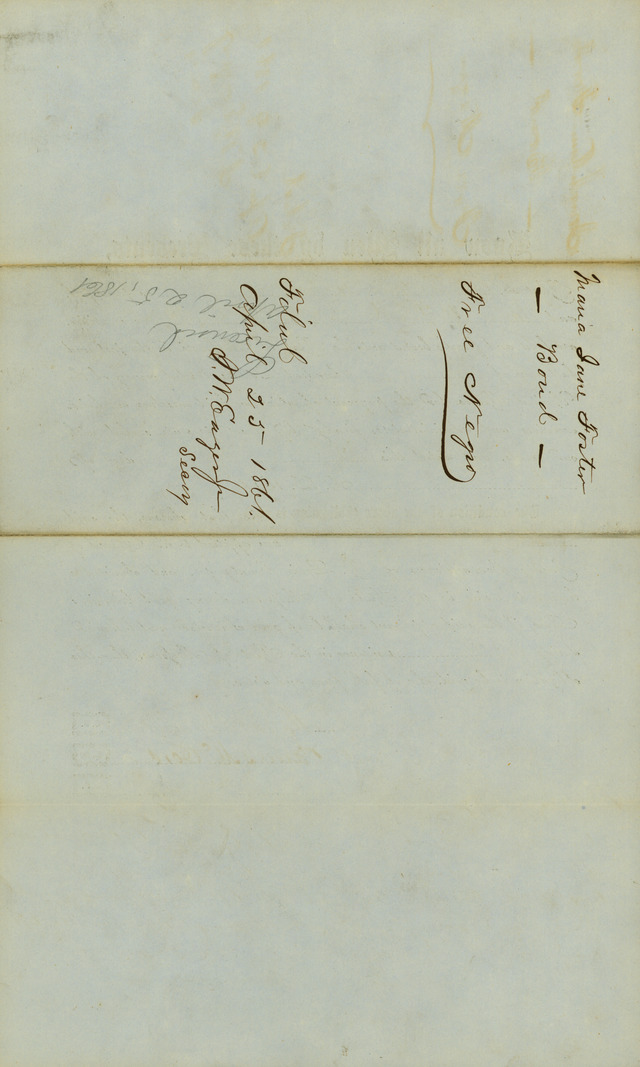 Maria Jane Foster
— Bond —
Free Negro
Filed
April 25 1861.
P. W. Eager Jr
Licensed
April 25, 1861